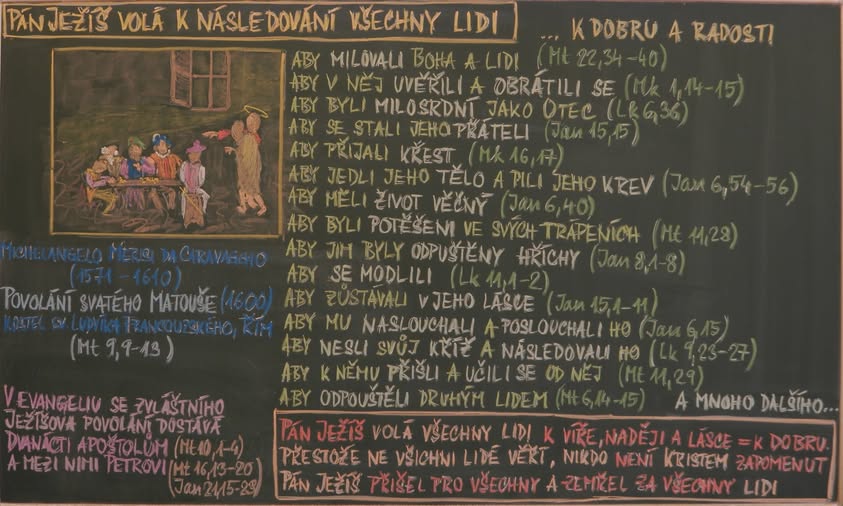 PÁN JEŽÍŠ VOLÁ K NÁSLEDOVÁNÍ VŠECHNY LIDI
... K DOBRU A RADOSTI
ABY MILOVALI BOHA A LIDI (Mt 22,34-40)
ABY V NĚJ UVĚŘILI A OBRÁTILI SE (Mk 1,14-15)
ABY BYLI MILOSRDNÍ JAKO OTEC (Lk 6,36)
ABY SE STALI JEHO PŘÁTELI (Jan 15,15)
ABY PŘIJALI KŘEST (Mk 16,17)
ABY JEDLI JEHO TĚLO A PILI JEHO KREV (Jan 6,54-56)
ABY MĚLI ŽIVOT VĚČNÝ (Jan 6,40)
ABY BYLI POTĚŠENI VE SVÝCH TRÁPENÍCH (Mt 11,28)
ABY JIM BYLY ODPUŠTĚNY HŘÍCHY (Jan 8,1-8)
ABY SE MODLILI (Lk 11,1-2)
ABY ZŮSTÁVALI V JEHO LÁSCE (Jan 15,1-11)
ABY MU NASLOUCHALI A POSLOUCHALI HO (Jan 6,15)
ABY NESLI SVŮJ KŘÍŽ A NÁSLEDOVALI HO (Lk 9,23-27)
ABY K NĚMU PŘIŠLI A UČILI SE OD NĚJ (Mt 11,29)
ABY ODPOUŠTĚLI DRUHÝM LIDEM (Mt 6,14-15)
A MNOHO DALŠÍHO...
MICHELANGELO MERISI DA CARAVAGGIO
(1571-1610)
POVOLÁNÍ SVATÉHO MATOUŠE (1600)
KOSTEL SV. LUDVÍKA FRANCOUZSKÉHO, ŘÍM
(Mt 9,9-13)
V EVANGELIU SE ZVLÁŠTNÍHO
JEŽÍŠOVA POVOLÁNÍ DOSTÁVÁ
DVANÁCTI APOŠTOLŮM (Mt 10,1-4)
A MEZI NIMI PETROVI (Mt 16,13-20)
Jan 21,15-23)
PÁN JEŽÍŠ VOLÁ VŠECHNY LIDI K VÍŘE, NADĚJI A LÁSCE = K DOBRU.
PŘESTOŽE NE VŠICHNI LIDÉ VĚŘÍ, NIKDO NENÍ KRISTEM ZAPOMENUT
PÁN JEŽÍŠ PŘIŠEL PRO VŠECHNY A ZEMŘEL ZA VŠECHNY LIDI